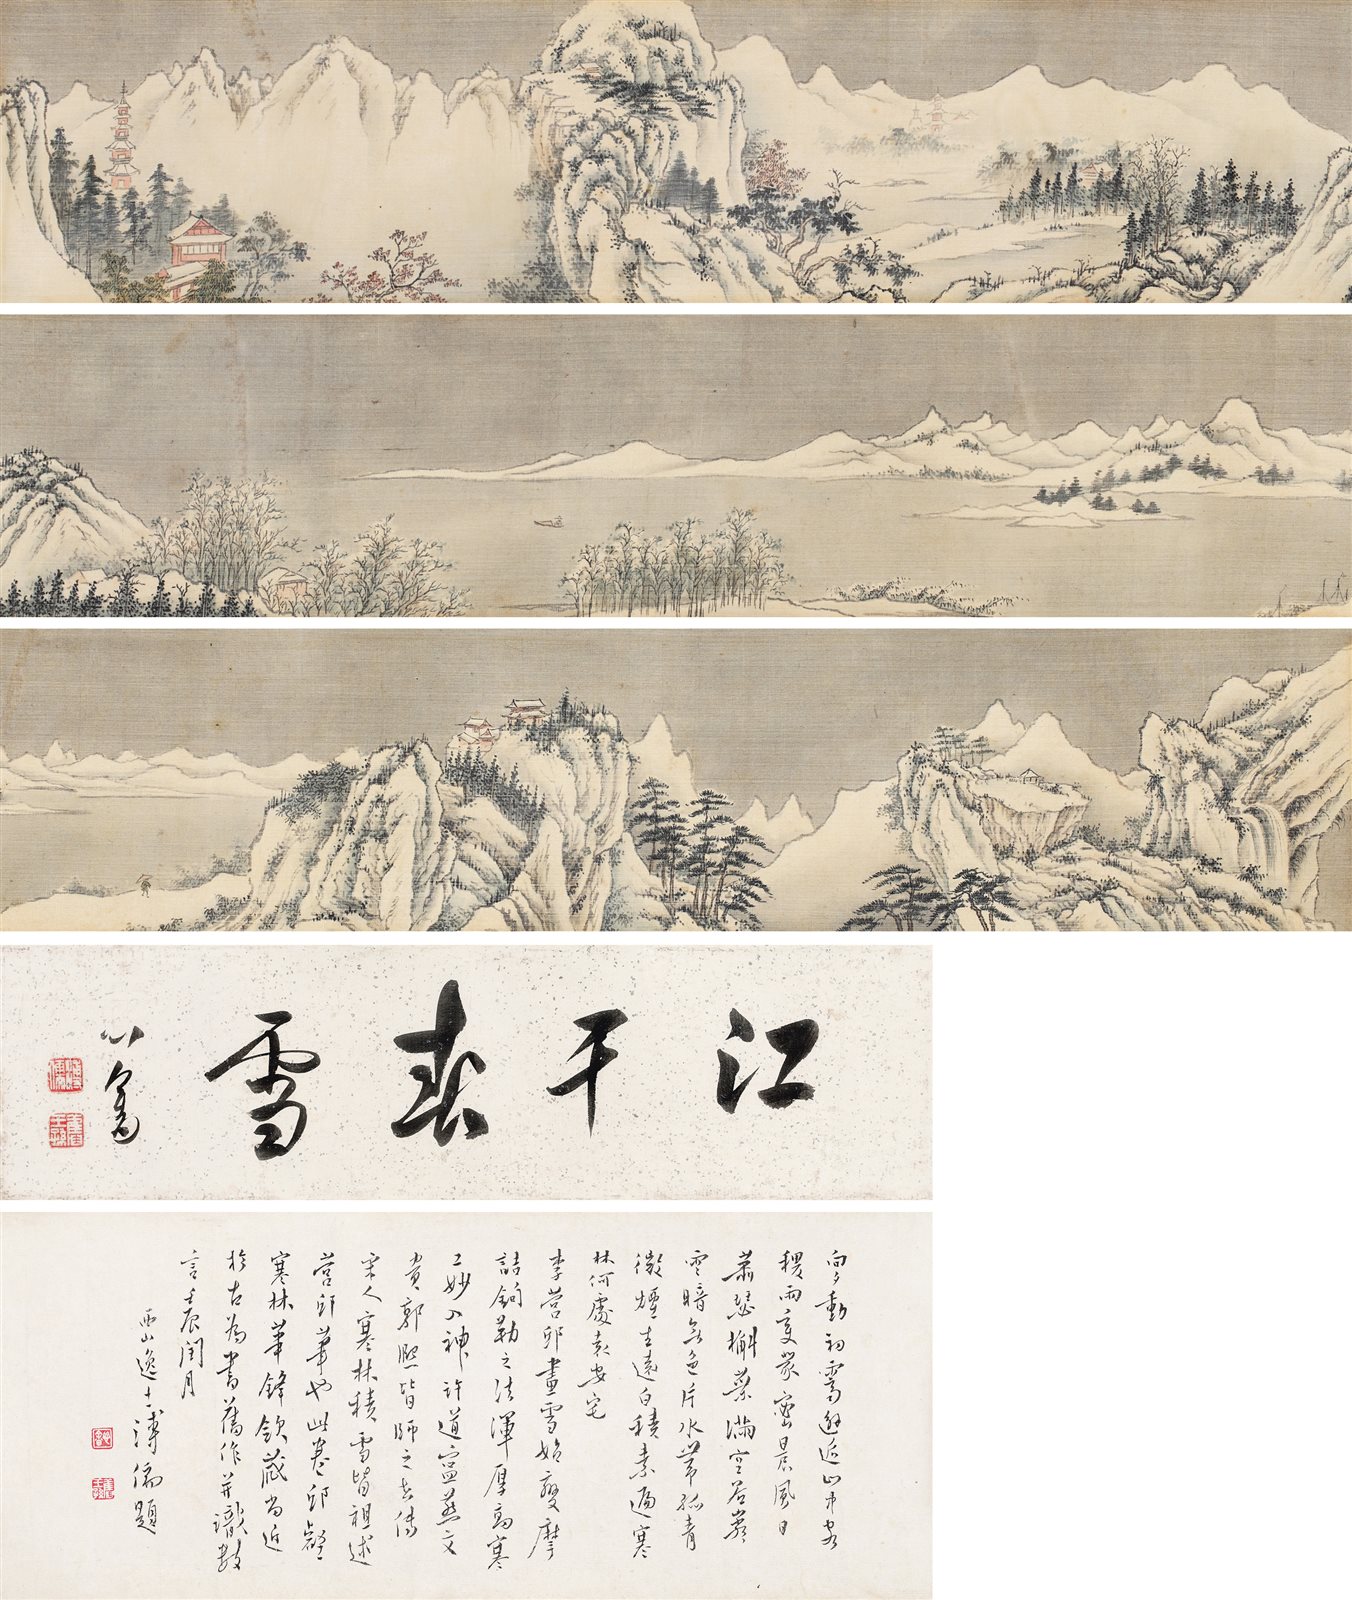 江干春雪
心畬
溥儒
舊王孫
向夕動初霽山中客
雨變密晨風日
蕭瑟槲葉滿空岩
雲暗無色片水帶孤青
微煙生遠白積素遍寒
林何處袁安宅
李營邱畫雪始變摩
詰鉤勒之法渾厚高寒
工妙入神許道寧燕文
貴郭熙皆師之世傳
宋人寒林積雪皆祖述
營邱筆也此卷邱壑
寒林筆鋒斂藏尚近
於古為書舊作并識數
言壬辰閏月
西山逸士溥儒題